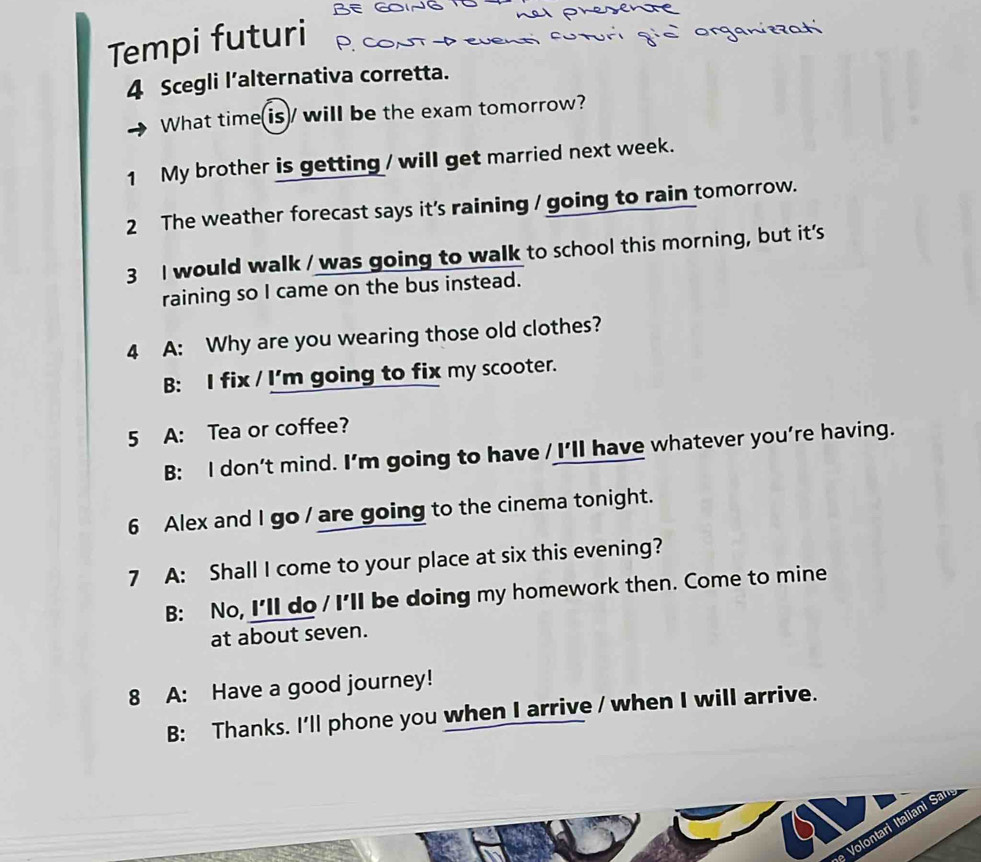 BE GOING TO → nel presente
Tempi futuri P. CONT → eventi futuri già organizzati
4 Scegli l'alternativa corretta.
→ What time is / will be the exam tomorrow?
1 My brother is getting / will get married next week.
2 The weather forecast says it's raining / going to rain tomorrow.
3 I would walk / was going to walk to school this morning, but it's
raining so I came on the bus instead.
4 A: Why are you wearing those old clothes?
B: I fix / I'm going to fix my scooter.
5 A: Tea or coffee?
B: I don't mind. I'm going to have / I'll have whatever you're having.
6 Alex and I go / are going to the cinema tonight.
7 A: Shall I come to your place at six this evening?
B: No, I'll do / I'll be doing my homework then. Come to mine
at about seven.
8 A: Have a good journey!
B: Thanks. I'll phone you when I arrive / when I will arrive.
Volontari Italiani Sang